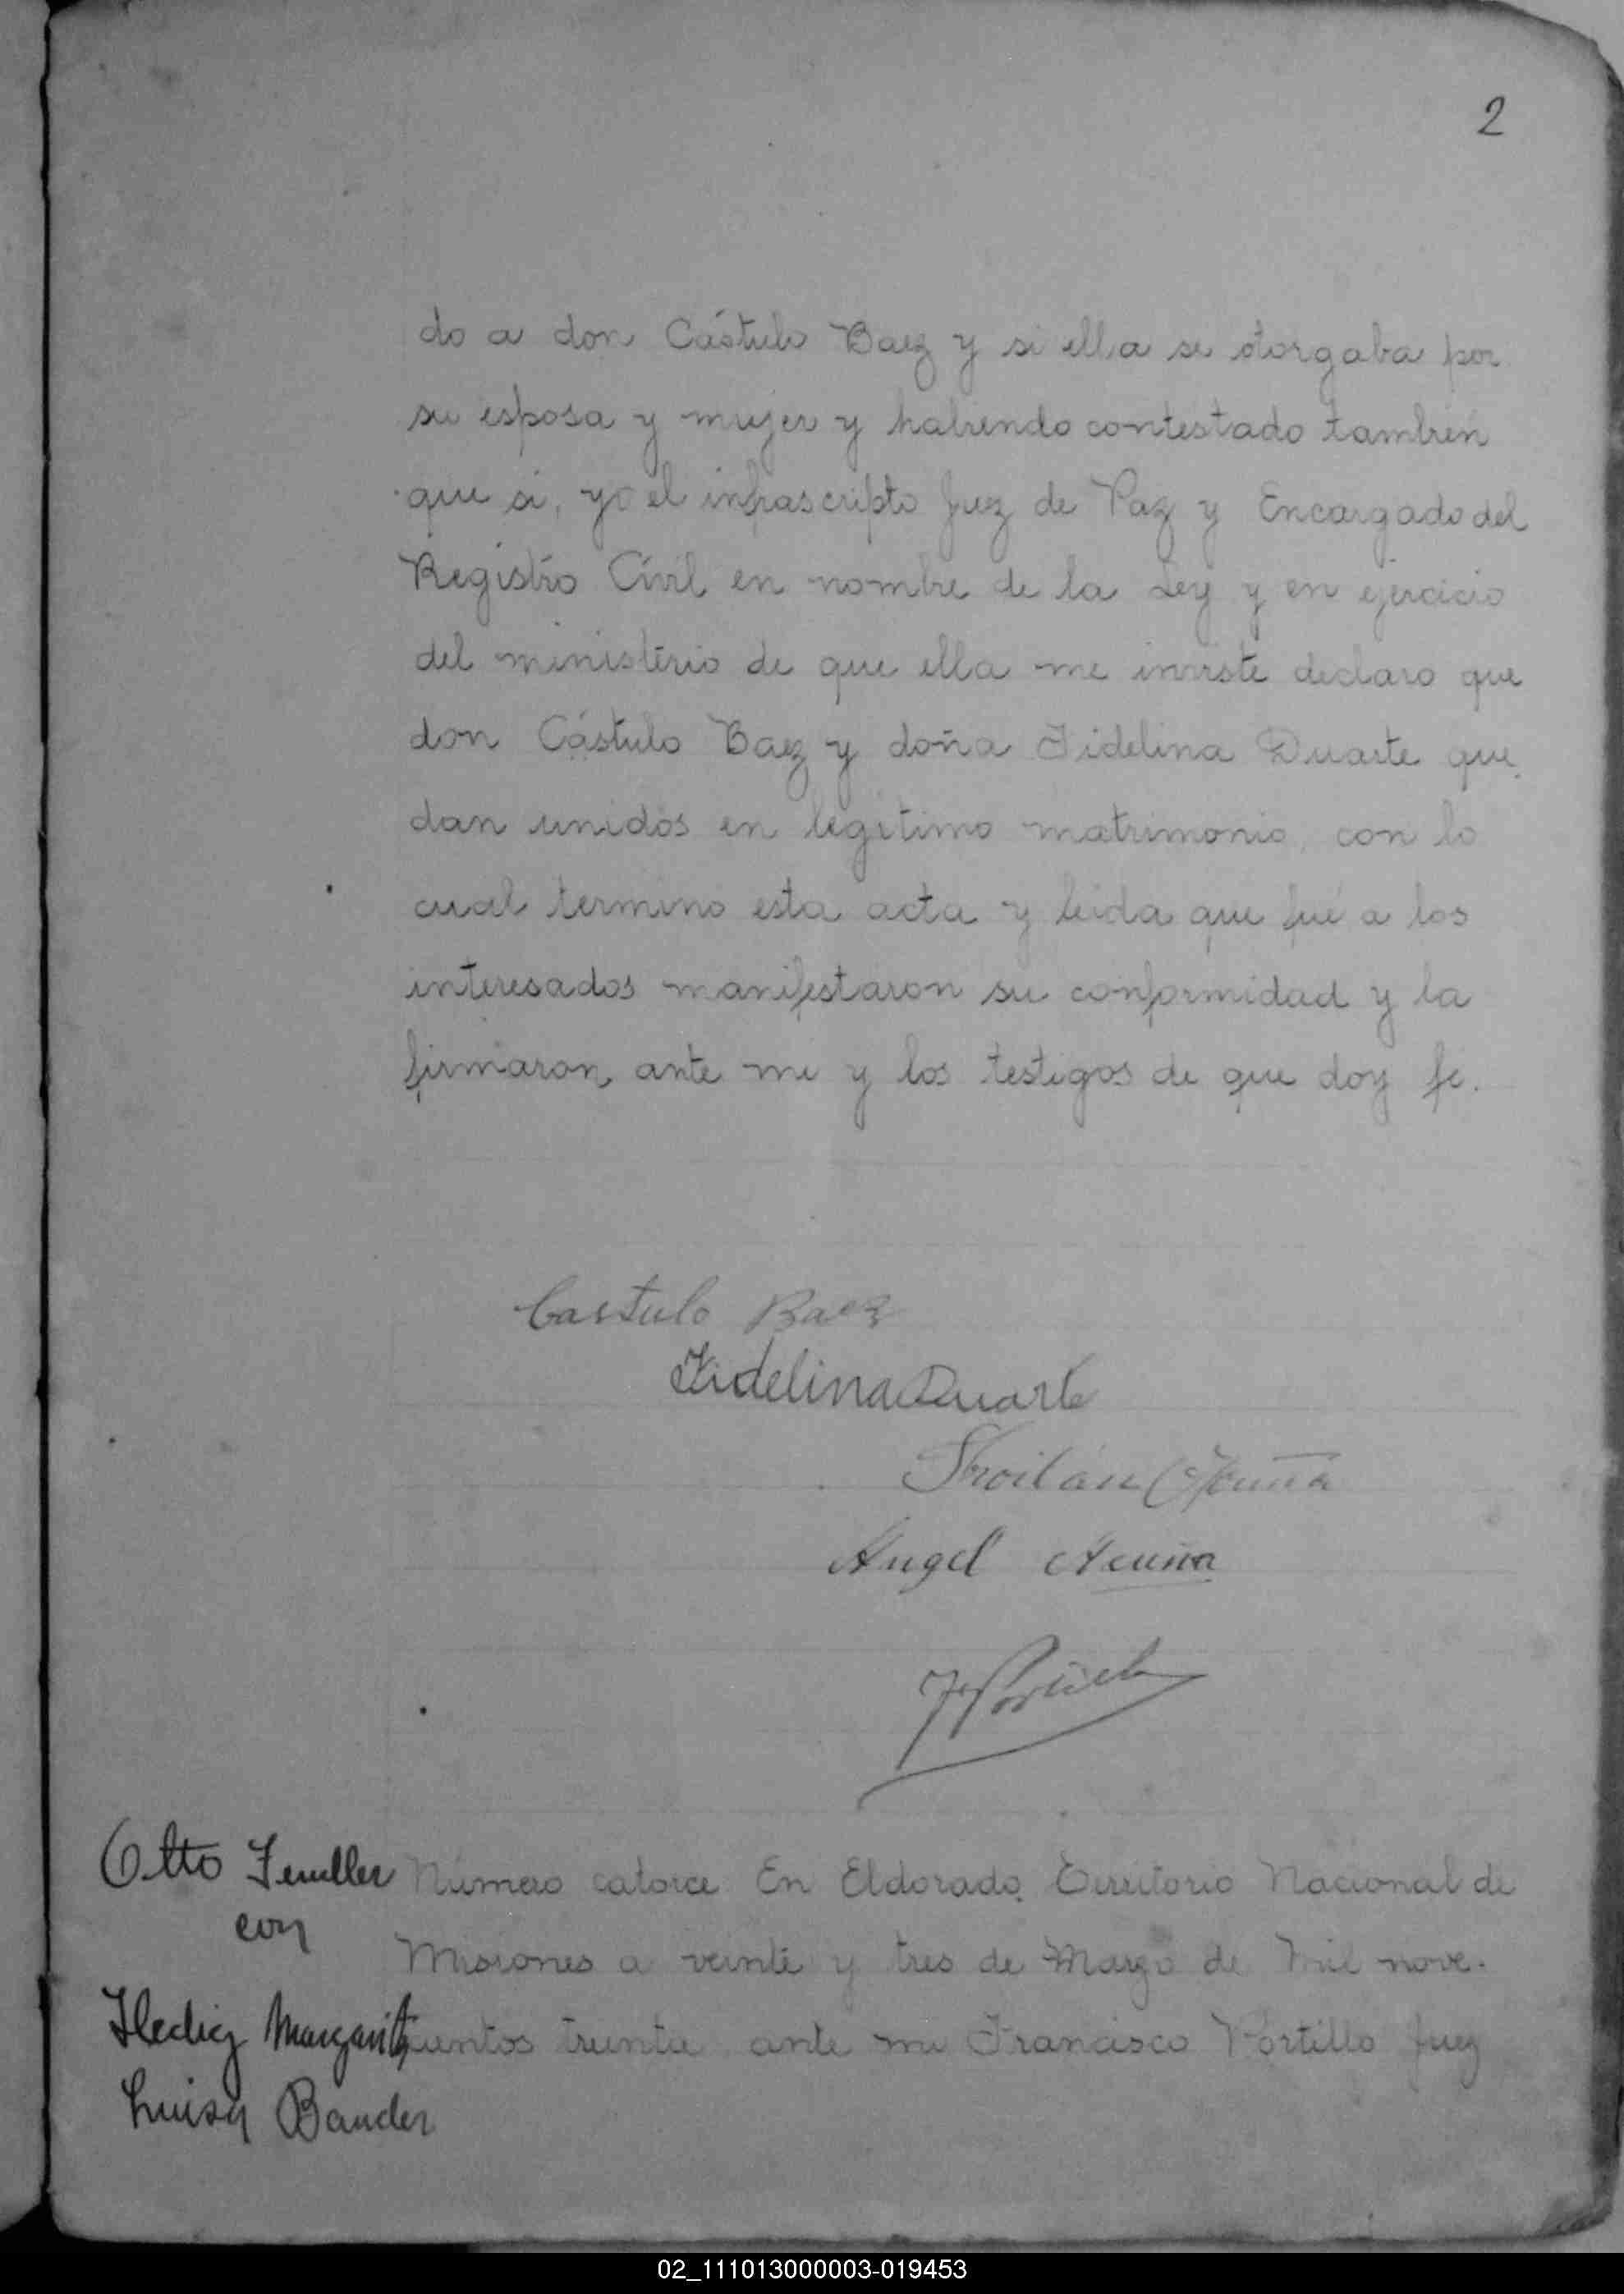 2
do a don Cástulo Baez y si ella se otorgaba por
su esposa y mujer y habiendo contestado también
que si, yo el infrascripto Juez de Paz y Encargado del
Registro Civil en nombre de la Ley y en ejercicio
del ministerio de que ella me inviste declaro que
don Cástulo Baez y doña Fidelina Duarte que
dan unidos en legitimo matrimonio, con lo
cual termino esta acta y leida que fué a los
interesados manifestaron su conformidad y la
firmaron ante mi y los testigos de que doy fe.
Castulo Baez
Fidelina Duarte
Froilán Acuña
Angel Acuña
F Portillo
Otto Feuller
con
Hedig Margarita
Luisa Bander
Número catorce En Eldorado, Territorio Nacional de
Misiones a veinte y tres de Marzo de Mil nove-
cientos treinta ante mi Francisco Portillo Juez
02_111013000003-019453